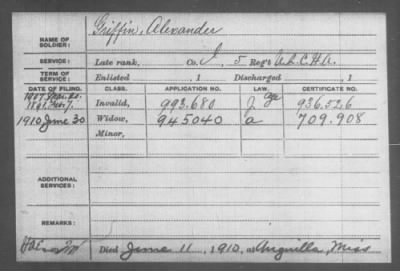 Griffin, Alexander
NAME OF SOLDIER:
SERVICE: Late rank, Co. I, 5 Reg't U.S.C.H.A.
TERM OF SERVICE: Enlisted , 1 Discharged , 1
DATE OF FILING. CLASS. APPLICATION NO. LAW. CERTIFICATE NO.
1891 Invalid, 993.680 J Age 936.526
1910 June 30 Widow, 945040 a 709.908
Minor,
ADDITIONAL SERVICES:
REMARKS:
Died June 11, 1910, at Anguilla, Miss